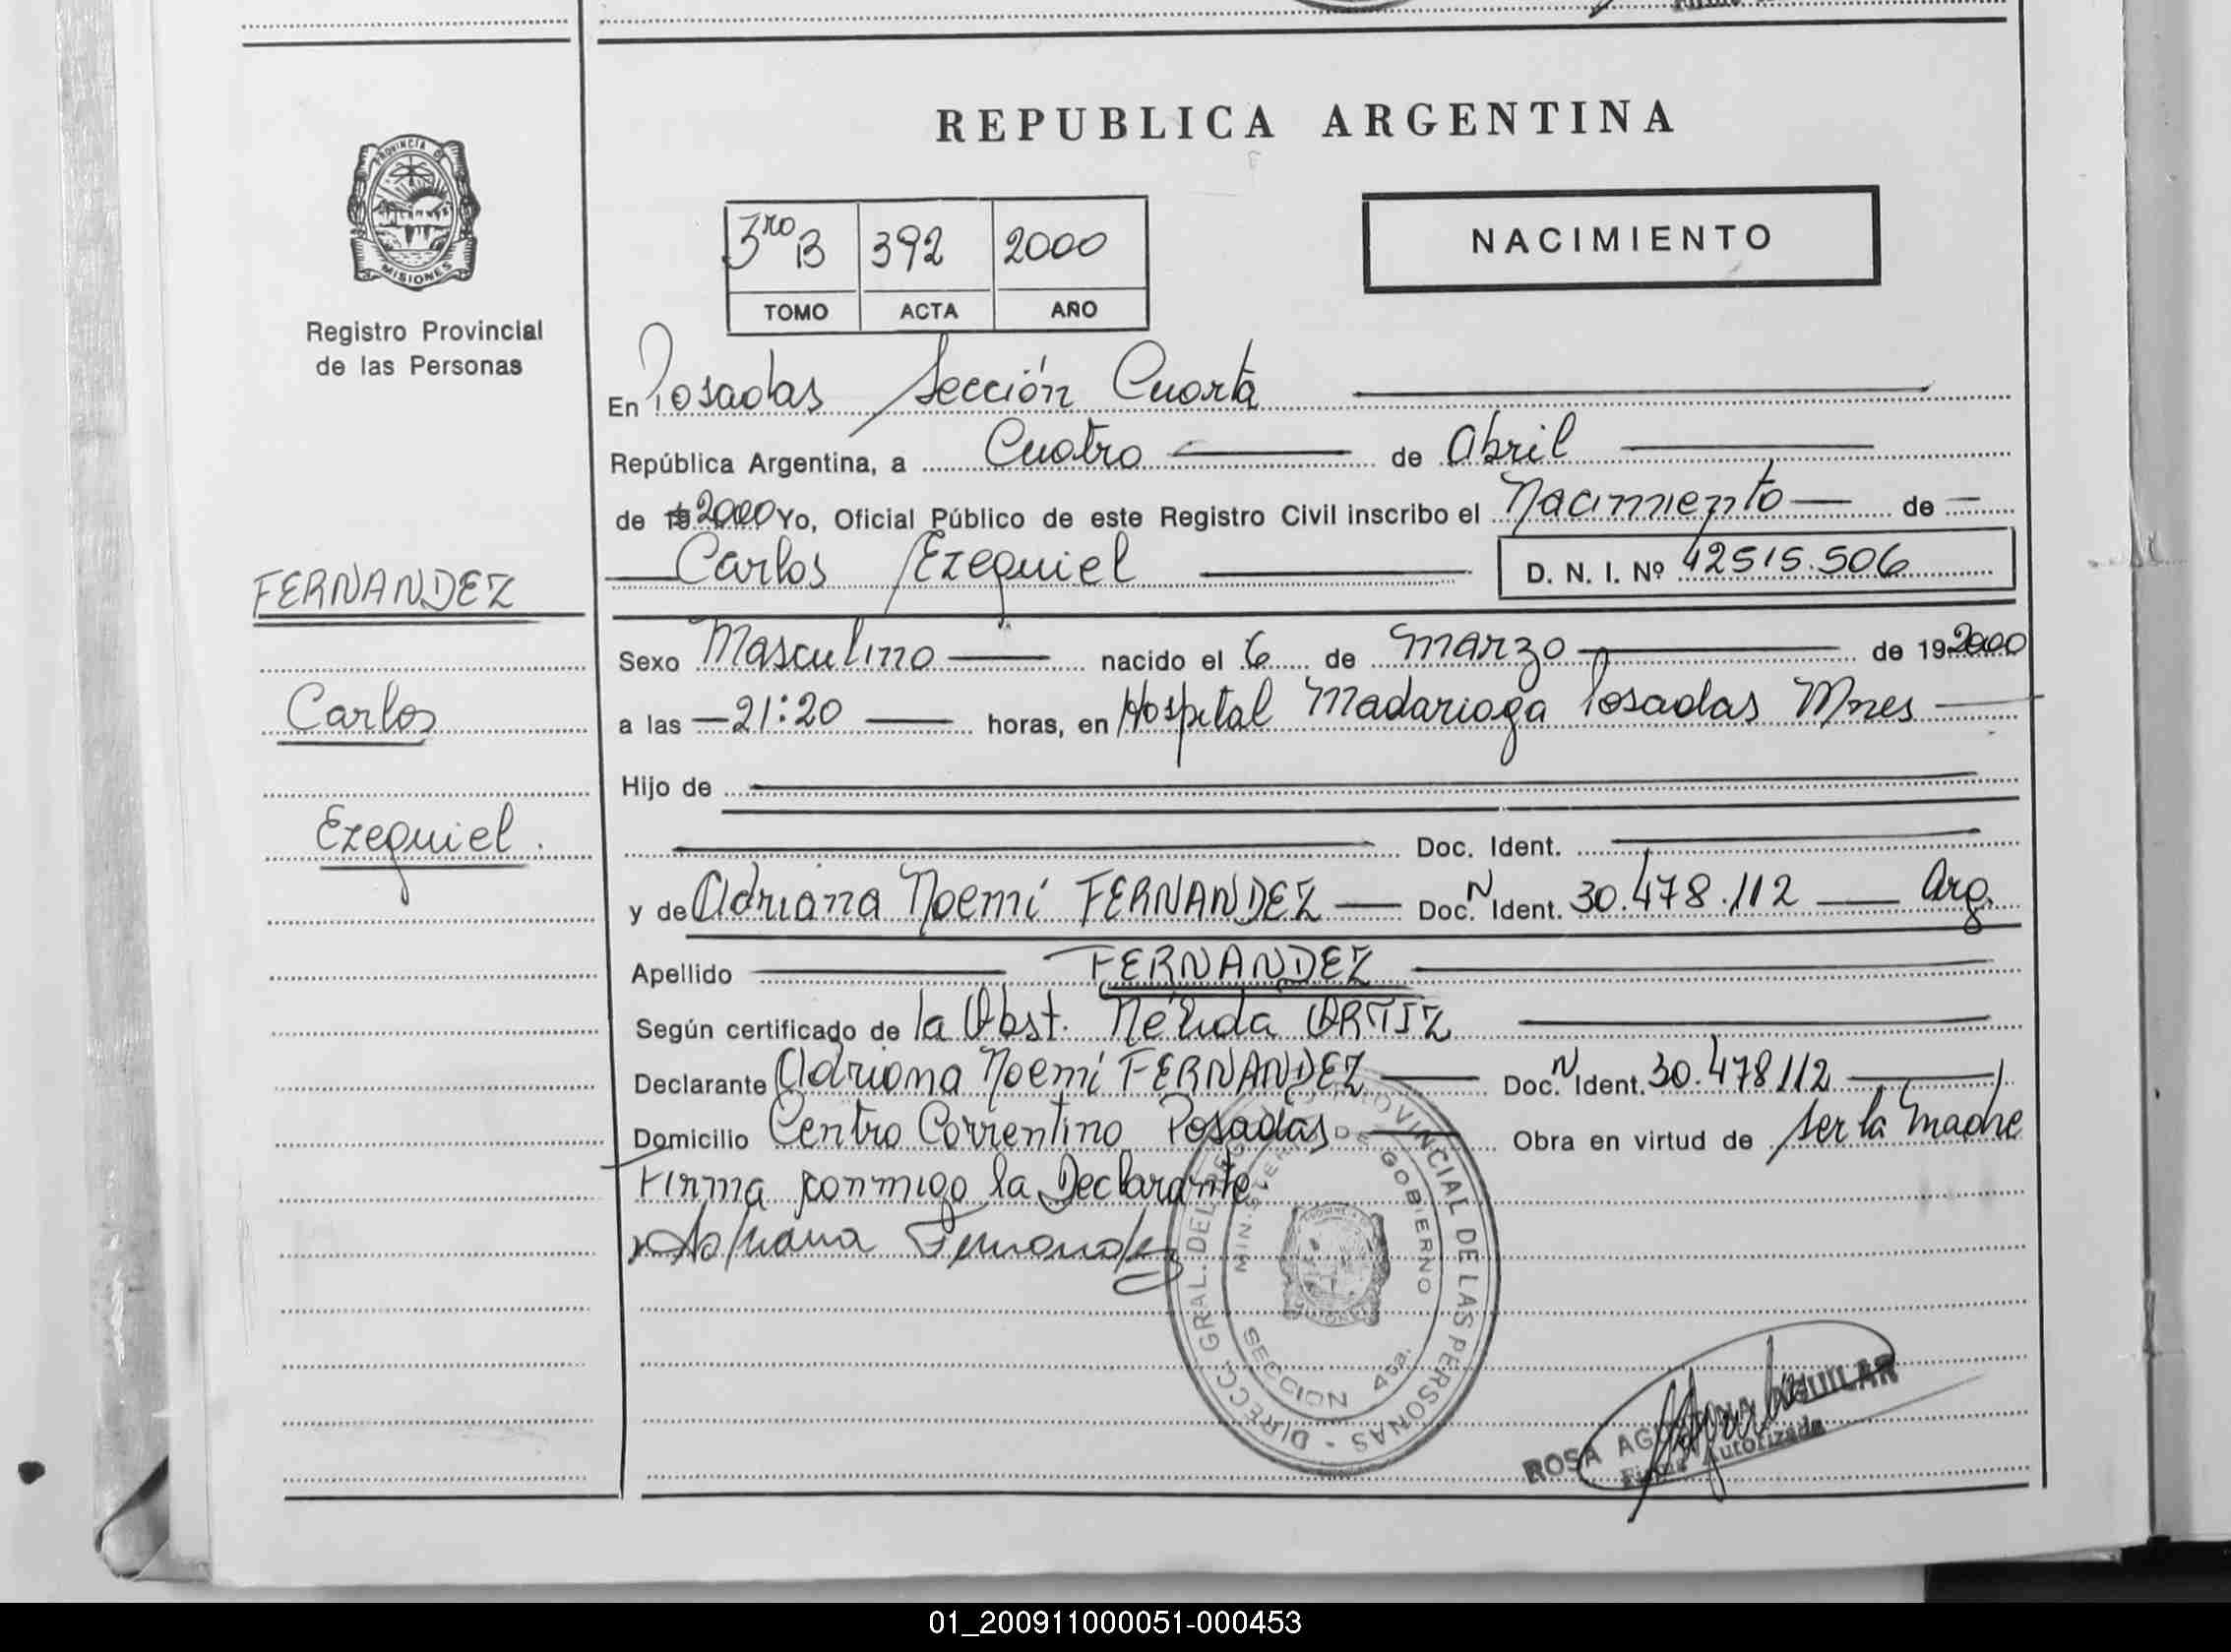 REPUBLICA ARGENTINA
PROVINCIA DE
MISIONES
Registro Provincial
de las Personas
3ro B 392 2000
TOMO ACTA AÑO
NACIMIENTO
En Posadas Sección Cuarta
República Argentina, a Cuatro de Abril
de 19 2000 Yo, Oficial Público de este Registro Civil inscribo el Nacimiento de
Carlos Ezequiel D. N. I. Nº 42515.506
FERNANDEZ
Carlos
Ezequiel.
Sexo Masculino nacido el 6 de marzo de 19 2000
a las 21:20 horas, en Hospital Madariaga Posadas Mnes
Hijo de
Doc. Ident.
y de Adriana Noemí FERNANDEZ Doc. N Ident. 30.478.112 Arg.
Apellido FERNANDEZ
Según certificado de la Obst. Nélida ORTIZ
Declarante Adriana Noemí FERNANDEZ Doc. N Ident. 30.478112
Domicilio Centro Correntino Posadas Obra en virtud de ser la madre
Firma conmigo la Declarante
Adriana Fernandez
DIRECC. GRAL. DEL REG. PROVINCIAL DE LAS PERSONAS
MINISTERIO DE GOBIERNO
SECCION 4ta.
ROSA AGUSTINA AGUILAR
Firma Autorizada
01_200911000051-000453